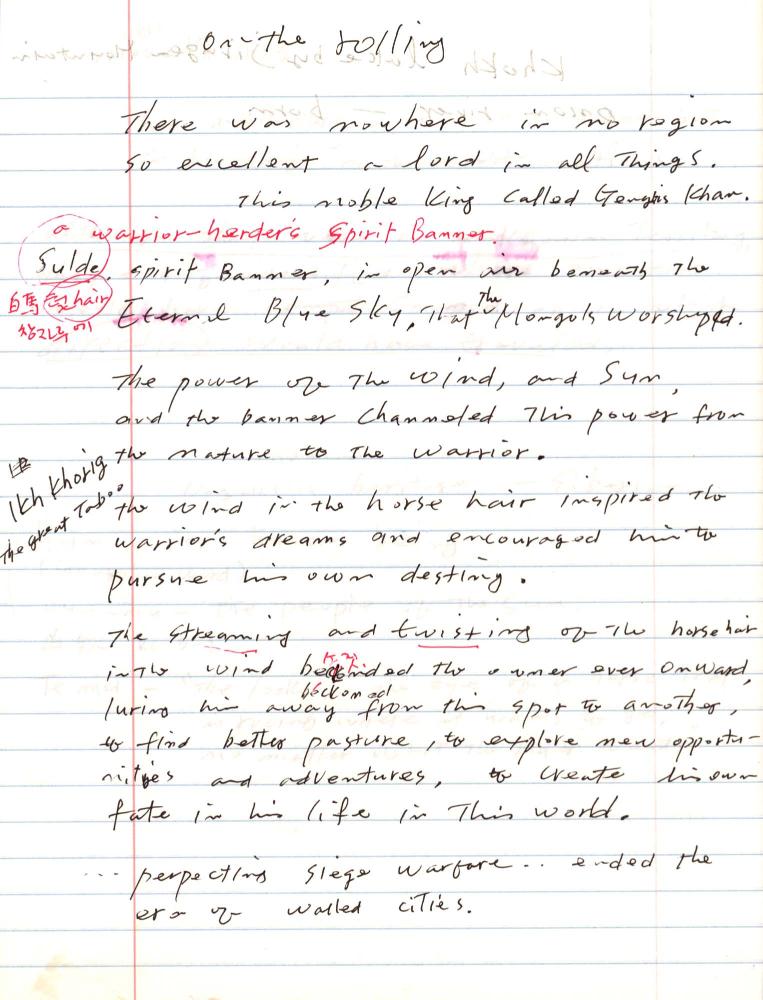 on the rolling
There was nowhere in no region
so excellent a lord in all Things.
This noble King called Genghis Khan.
a warrior-herder's Spirit Banner.
Sulde. spirit Banner, in open air beneath the
白馬 hair
창자루에
Eternal Blue Sky, That The Mongols Worshiped.
The power of The Wind, and Sun,
and the banner Channeled This power from
the nature to The Warrior.
Ikh Khorig
the great Taboo
the wind in the horse hair inspired the
warrior's dreams and encouraged him to
pursue his own destiny.
The streaming and twisting of The horsehair
in The wind the owner ever onward,
beckoned
luring him away from this spot to another,
to find better pasture, to explore new opportu-
nities and adventures, to create his own
fate in his life in This world.
... perpecting siege warfare.. ended the
era of walled cities.